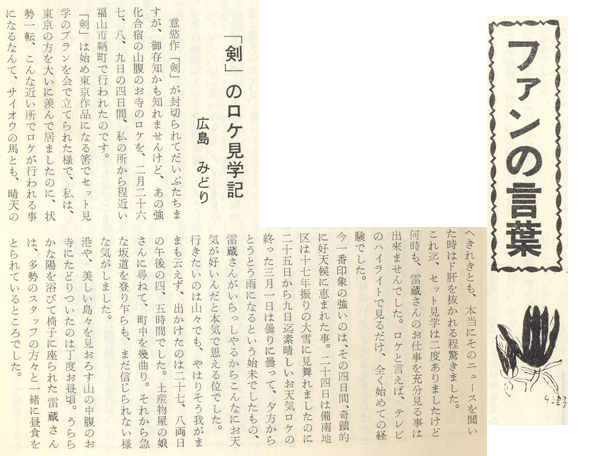 ファンの言葉
「剣」のロケ見学記
広島 みどり
意慾作『剣』が封切られてだいぶたちま
すが、御存知かも知れませんけど、あの強
化合宿の山腹のお寺のロケを、二月二十六
七、八、九日の四日間、私の所から程近い
福山市鞆町で行われたのです。
『剣』は始め東京作品になる筈でセット見
学のプランを会で立てられた様で、私は、
東京の方を大いに羨んで居ましたのに、状
勢一転、こんな近い所でロケが行われる事
になるなんて、サイオウの馬とも、晴天の
へきれきとも、本当にそのニュースを聞い
た時はド肝を抜かれる程驚きました。
これ迄、セット見学は二度ありましたけど
何時も、雷蔵さんのお仕事を充分見る事は
出来ませんでした。ロケと言えば、テレビ
のハイライトで見るだけ、全く始めての経
験でした。
今一番印象の強いのは、その四日間、奇蹟的
に好天候に恵まれた事。二十四日は備南地
区は十七年振りの大雪に見舞れましたのに
二十五日から九日迄素晴しいお天気ロケの
終った三月一日は曇りに曇って、夕方から
とうとう雨になるという始末でしたもの、
雷蔵さんがいらっしゃるからこんなにお天
気が好いんだと本気で思える位でした。
行きたいのは山々でも、やはりそう我がま
まも云えず、出かけたのは二十七、八両日
の午後の四、五時間でした。土産物屋の娘
さんに尋ねて、町中を幾曲り。それから急
な坂道を登り乍らも、まだ信じられない様
な気がしました。
港や、美しい島々を見おろす山の中腹のお
寺にたどりついたのは丁度お昼頃。うらら
かな陽を浴びて椅子に座られた雷蔵さん
は、多勢のスタッフの方々と一緒に昼食を
とられているところでした。